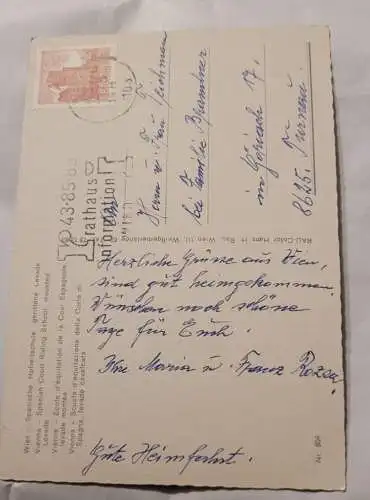 Wien – Spanische Hofreitschule gerittene Levade
Vienna – Spanish Court Riding School mounted
Levade
Vienne – Ecole d'équitation de la Cour Espagnole
levade montée
Vienna – Scuola d'equitazione della Corte di
Spagna, levade cavalcata
Nr. 806
RAU-Color Hans H. Rau, Wien III,
43-85-8
rathaus
information
Herrn u. Frau
bei Familie Brandner
in Göriach 17.
8625. Turnau.
Herzliche Grüsse aus Wien,
sind gut heimgekommen.
Wünschen noch schöne
Tage für Euch.
Ihre Maria u. Franz Rozsa.
Gute Heimfahrt.